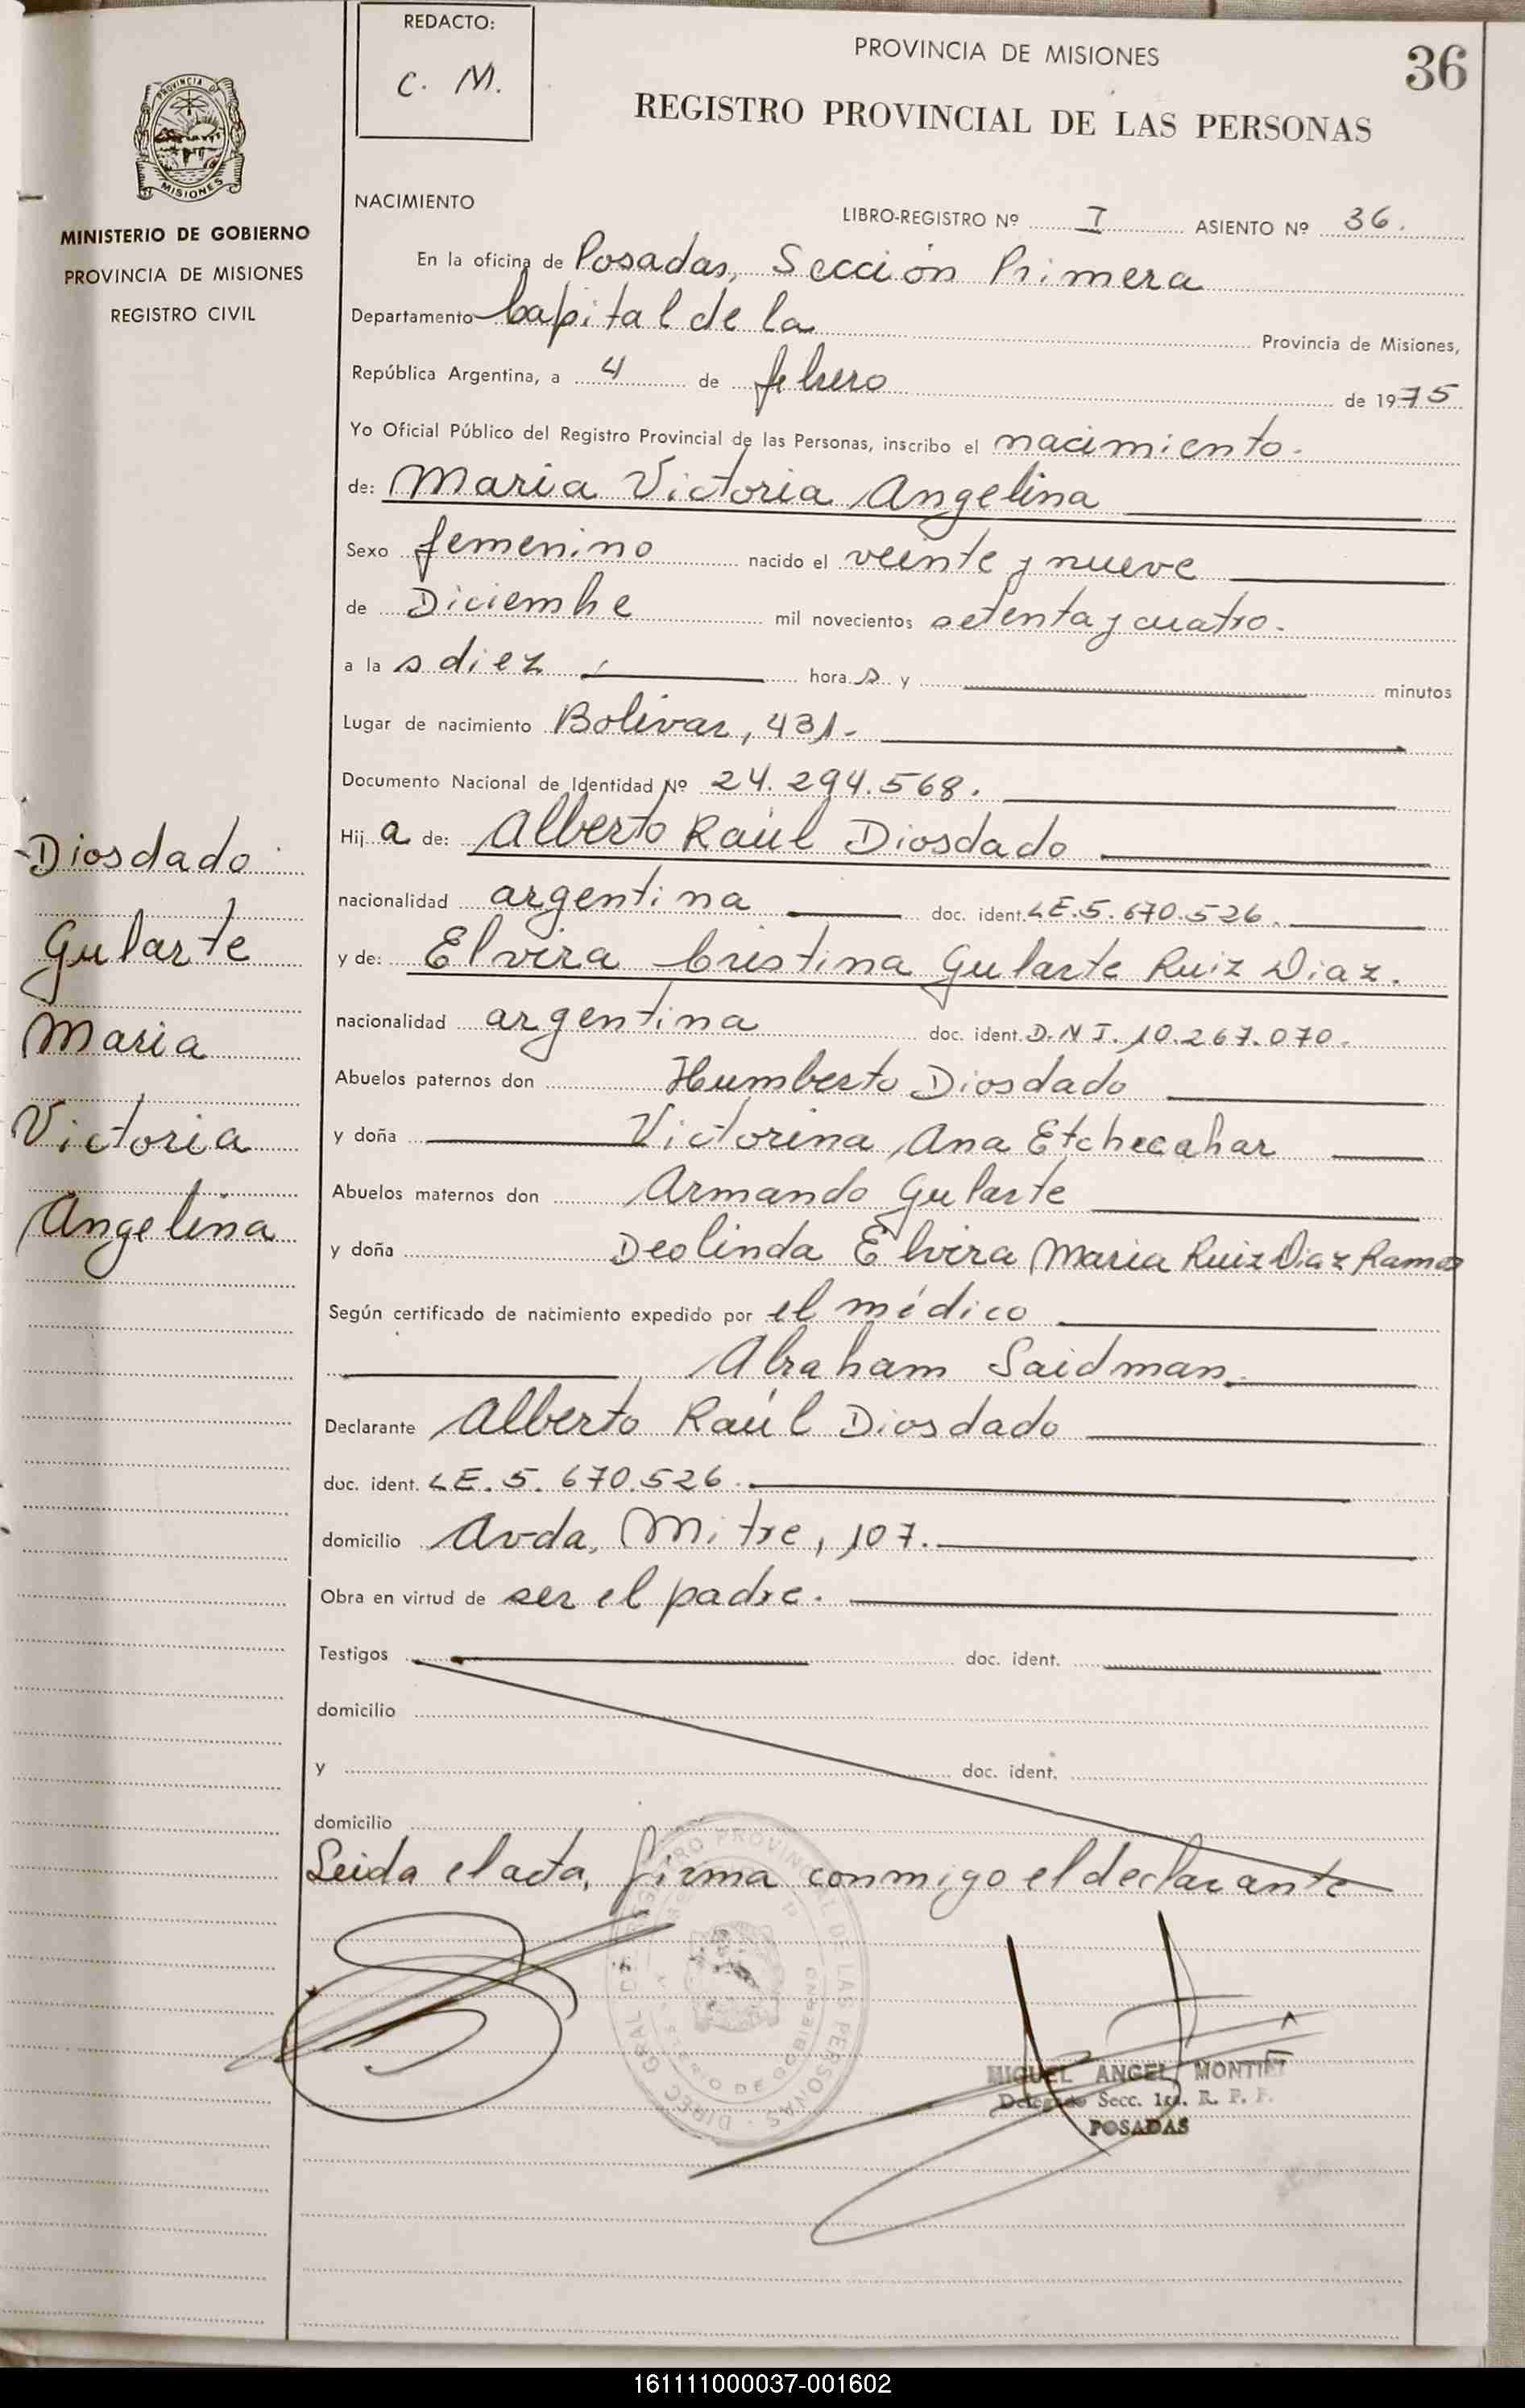 REDACTO:
C. M.
PROVINCIA DE MISIONES
36
REGISTRO PROVINCIAL DE LAS PERSONAS
PROVINCIA DE
MISIONES
MINISTERIO DE GOBIERNO
PROVINCIA DE MISIONES
REGISTRO CIVIL
NACIMIENTO
LIBRO-REGISTRO Nº I ASIENTO Nº 36.
En la oficina de Posadas, Sección Primera
Departamento Capital de la Provincia de Misiones,
República Argentina, a 4 de febrero de 1975
Yo Oficial Público del Registro Provincial de las Personas, inscribo el nacimiento.
de: Maria Victoria Angelina
Sexo femenino nacido el veinte y nueve
de Diciembre mil novecientos setenta y cuatro.
a la s diez hora s y minutos
Lugar de nacimiento Bolivar, 431.
Documento Nacional de Identidad Nº 24.294.568.
Hij a de: Alberto Raúl Diosdado
nacionalidad argentina doc. ident. LE.5.670.526.
y de: Elvira Cristina Gularte Ruiz Diaz.
nacionalidad argentina doc. ident. D.N I. 10.267.070.
Abuelos paternos don Humberto Diosdado
y doña Victorina Ana Etchecahar
Abuelos maternos don Armando Gularte
y doña Deolinda Elvira Maria Ruiz Diaz Ramos
Según certificado de nacimiento expedido por el médico
Abraham Saidman.
Declarante Alberto Raúl Diosdado
doc. ident. LE. 5. 670.526.
domicilio Avda. Mitre, 107.
Obra en virtud de ser el padre.
Testigos doc. ident.
domicilio
y doc. ident.
domicilio
Leida el acta, firma conmigo el declarante
Diosdado
Gularte
Maria
Victoria
Angelina
DIREC. GRAL. DE REGISTRO PROVINCIAL DE LAS PERSONAS
MIGUEL ANGEL MONTIEL
Delegado Secc. 1ra. R. P. P.
POSADAS
161111000037-001602